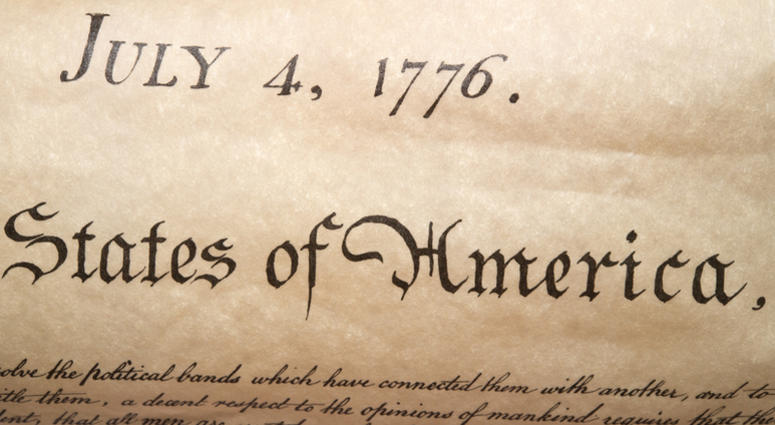 JULY 4, 1776.
States of America,
solve the political bands which have connected them with another, and to
itle them, a decent respect to the opinions of mankind requires that the
dent, that all men are